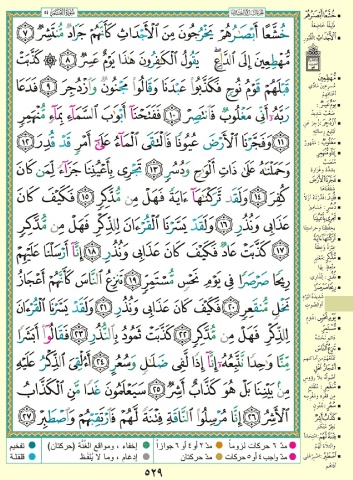 خُشَّعًا أَبْصَٰرُهُمْ يَخْرُجُونَ مِنَ ٱلْأَجْدَاثِ كَأَنَّهُمْ جَرَادٌ مُّنتَشِرٌ ٧
مُّهْطِعِينَ إِلَى ٱلدَّاعِ ۖ يَقُولُ ٱلْكَٰفِرُونَ هَٰذَا يَوْمٌ عَسِرٌ ٨ ۞ كَذَّبَتْ
قَبْلَهُمْ قَوْمُ نُوحٍ فَكَذَّبُوا۟ عَبْدَنَا وَقَالُوا۟ مَجْنُونٌ وَٱزْدُجِرَ ٩ فَدَعَا
رَبَّهُۥٓ أَنِّى مَغْلُوبٌ فَٱنتَصِرْ ١٠ فَفَتَحْنَآ أَبْوَٰبَ ٱلسَّمَآءِ بِمَآءٍ مُّنْهَمِرٍ
١١ وَفَجَّرْنَا ٱلْأَرْضَ عُيُونًا فَٱلْتَقَى ٱلْمَآءُ عَلَىٰٓ أَمْرٍ قَدْ قُدِرَ ١٢
وَحَمَلْنَٰهُ عَلَىٰ ذَاتِ أَلْوَٰحٍ وَدُسُرٍ ١٣ تَجْرِى بِأَعْيُنِنَا جَزَآءً لِّمَن كَانَ
كُفِرَ ١٤ وَلَقَد تَّرَكْنَٰهَآ ءَايَةً فَهَلْ مِن مُّدَّكِرٍ ١٥ فَكَيْفَ كَانَ
عَذَابِى وَنُذُرِ ١٦ وَلَقَدْ يَسَّرْنَا ٱلْقُرْءَانَ لِلذِّكْرِ فَهَلْ مِن مُّدَّكِرٍ
١٧ كَذَّبَتْ عَادٌ فَكَيْفَ كَانَ عَذَابِى وَنُذُرِ ١٨ إِنَّآ أَرْسَلْنَا عَلَيْهِمْ
رِيحًا صَرْصَرًا فِى يَوْمِ نَحْسٍ مُّسْتَمِرٍّ ١٩ تَنزِعُ ٱلنَّاسَ كَأَنَّهُمْ أَعْجَازُ
نَخْلٍ مُّنقَعِرٍ ٢٠ فَكَيْفَ كَانَ عَذَابِى وَنُذُرِ ٢١ وَلَقَدْ يَسَّرْنَا ٱلْقُرْءَانَ
لِلذِّكْرِ فَهَلْ مِن مُّدَّكِرٍ ٢٢ كَذَّبَتْ ثَمُودُ بِٱلنُّذُرِ ٢٣ فَقَالُوٓا۟ أَبَشَرًا
مِّنَّا وَٰحِدًا نَّتَّبِعُهُۥٓ إِنَّآ إِذًا لَّفِى ضَلَٰلٍ وَسُعُرٍ ٢٤ أَءُلْقِىَ ٱلذِّكْرُ عَلَيْهِ
مِنۢ بَيْنِنَا بَلْ هُوَ كَذَّابٌ أَشِرٌ ٢٥ سَيَعْلَمُونَ غَدًا مَّنِ ٱلْكَذَّابُ
ٱلْأَشِرُ ٢٦ إِنَّا مُرْسِلُوا۟ ٱلنَّاقَةِ فِتْنَةً لَّهُمْ فَٱرْتَقِبْهُمْ وَٱصْطَبِرْ ٢٧
مدّ ٦ حركات لزوماً مدّ ٢ أو ٤ أو ٦ جوازاً إخفاء، ومواقع الغنّة (حركتان) تفخيم
مدّ واجب ٤ أو ٥ حركات مدّ حركتان إدغام، وما لا يُلفظ قلقلة
٥٢٩